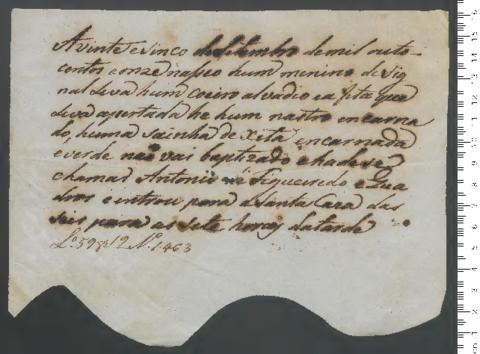 A vinte e sinco de Setembro de mil outo-
centos e onze nasseo hum menino de Sig
nal Leva hum coeiro alvadio e a fita que
Leva apertada he hum nastro encarna
do, huma sainha de xita encarnada
e verde não vai baptizado e hade se
chamar Antonio de Figueiredo e Qua
dros e entrou para a Santa Caza das
seis para as sete horas da tarde
Lº 59 12 Nº 1463